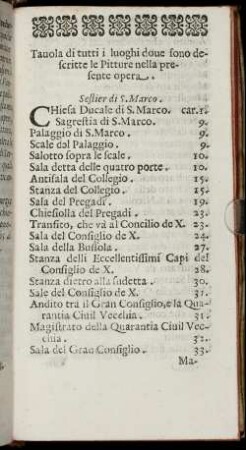 Tauola di tutti i luoghi doue sono de-
scritte le Pitture nella pre-
sente opera.
Sestier di S. Marco.
Chiesa Ducale di S. Marco. car. 1.
Sagrestia di S. Marco. 9.
Palaggio di S. Marco. 9.
Scale dal Palaggio. 9.
Salotto sopra le scale. 10.
Sala detta delle quatro porte. 10.
Antisala del Collegio. 15.
Stanza del Collegio. 15.
Sala del Pregadi. 19.
Chiesolla del Pregadi. 23.
Transito, che và al Concilio de X. 23.
Sala del Consiglio de X. 24.
Sala della Bussola. 27.
Stanza delli Eccellentissimi Capi del
Consiglio de X. 28.
Stanza dietro alla sudetta. 30.
Sale del Consiglio de X. 31.
Andito tra il Gran Consiglio, e la Qua-
rantia Ciuil Vecchia. 31.
Magistrato della Quarantia Ciuil Vec-
chia. 32.
Sala del Gran Consiglio. 33.
Ma-